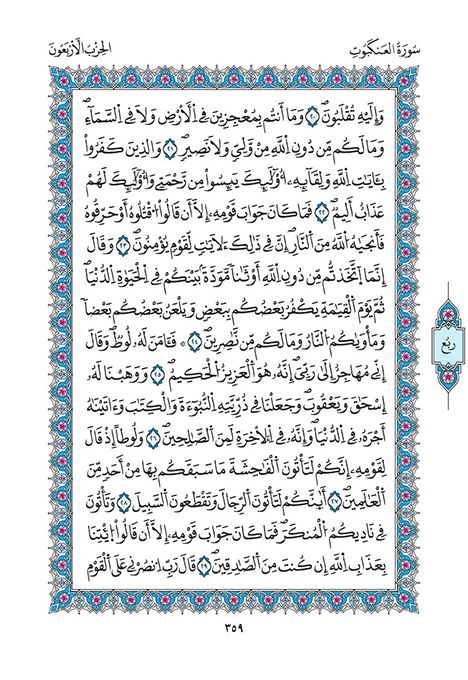 سُورَةُ الْعَنكَبُوتِ
الْحِزْبُ الْأَرْبَعُونَ
وَإِلَيْهِ تُقْلَبُونَۖ ٢٠ وَمَا أَنتُم بِمُعْجِزِينَ فِي اِ۬لْأَرْضِ وَلَا فِي اِ۬لسَّمَآءِۖ
وَمَا لَكُم مِّن دُونِ اِ۬للَّهِ مِنْ وَّلِيّٖ وَلَا نَصِيرٖۖ ٢١ وَالذِينَ كَفَرُواْ
بِـَٔايَٰتِ اِ۬للَّهِ وَلِقَآئِهِۦٓ أُوْلَٰٓئِكَ يَئِسُواْ مِن رَّحْمَتِي وَأُوْلَٰٓئِكَ لَهُمْ
عَذَابٌ أَلِيمٞۖ ٢٢ فَمَا كَانَ جَوَابَ قَوْمِهِۦٓ إِلَّا أَن قَالُواْ اُ۟قْتُلُوهُ أَوْ حَرِّقُوهُ
فَأَنجَىٰهُ اُ۬للَّهُ مِنَ اَ۬لنَّارِۖ إِنَّ فِي ذَٰلِكَ لَأٓيَٰتٖ لِّقَوْمٖ يُؤْمِنُونَۖ ٢٣ وَقَالَ
إِنَّمَا اَ۪تَّخَذتُّم مِّن دُونِ اِ۬للَّهِ أَوْثَٰناٗ مَّوَدَّةَۢ بَيْنَكُمْ فِي اِ۬لْحَيَوٰةِ اِ۬لدُّنْيَاۖ
ثُمَّ يَوْمَ اَ۬لْقِيَٰمَةِ يَكْفُرُ بَعْضُكُم بِبَعْضٖ وَيَلْعَنُ بَعْضُكُم بَعْضاٗ
وَمَأْوَىٰكُمُ اُ۬لنَّارُ وَمَا لَكُم مِّن نَّٰصِرِينَۖ ٢٤ ۞ فَـَٔامَنَ لَهُۥ لُوطٞۖ وَقَالَ
إِنِّي مُهَاجِرٌ إِلَىٰ رَبِّيَۖ إِنَّهُۥ هُوَ اَ۬لْعَزِيزُ اُ۬لْحَكِيمُۖ ٢٥ وَوَهَبْنَا لَهُۥٓ
إِسْحَٰقَ وَيَعْقُوبَۖ وَجَعَلْنَا فِي ذُرِّيَّتِهِ اِ۬لنُّبُوٓءَةَ وَالْكِتَٰبَ وَءَاتَيْنَٰهُ
أَجْرَهُۥ فِي اِ۬لدُّنْيَاۖ وَإِنَّهُۥ فِي اِ۬لْأٓخِرَةِ لَمِنَ اَ۬لصَّٰلِحِينَۖ ٢٦ وَلُوطاً إِذْ قَالَ
لِقَوْمِهِۦٓ إِنَّكُمْ لَتَأْتُونَ اَ۬لْفَٰحِشَةَ مَا سَبَقَكُم بِهَا مِنْ أَحَدٖ مِّنَ
اَ۬لْعَٰلَمِينَۖ ٢٧ أَئِنَّكُمْ لَتَأْتُونَ اَ۬لرِّجَالَ وَتَقْطَعُونَ اَ۬لسَّبِيلَۖ ٢٨ وَتَأْتُونَ
فِي نَادِيكُمُ اُ۬لْمُنكَرَۖ فَمَا كَانَ جَوَابَ قَوْمِهِۦٓ إِلَّا أَن قَالُواْ اُ۪ئْتِنَا
بِعَذَابِ اِ۬للَّهِ إِن كُنتَ مِنَ اَ۬لصَّٰدِقِينَۖ ٢٩ قَالَ رَبِّ اِ۟نصُرْنِي عَلَى اَ۬لْقَوْمِ
ربع
٣٥٩